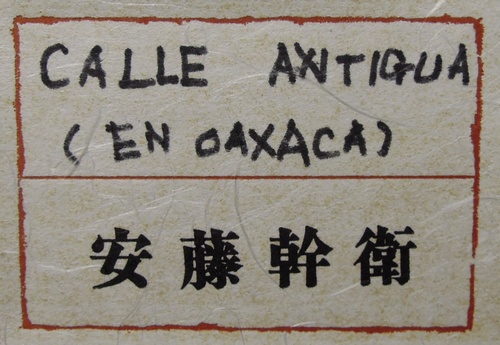 CALLE ANTIGUA
(EN OAXACA)
安藤幹衛